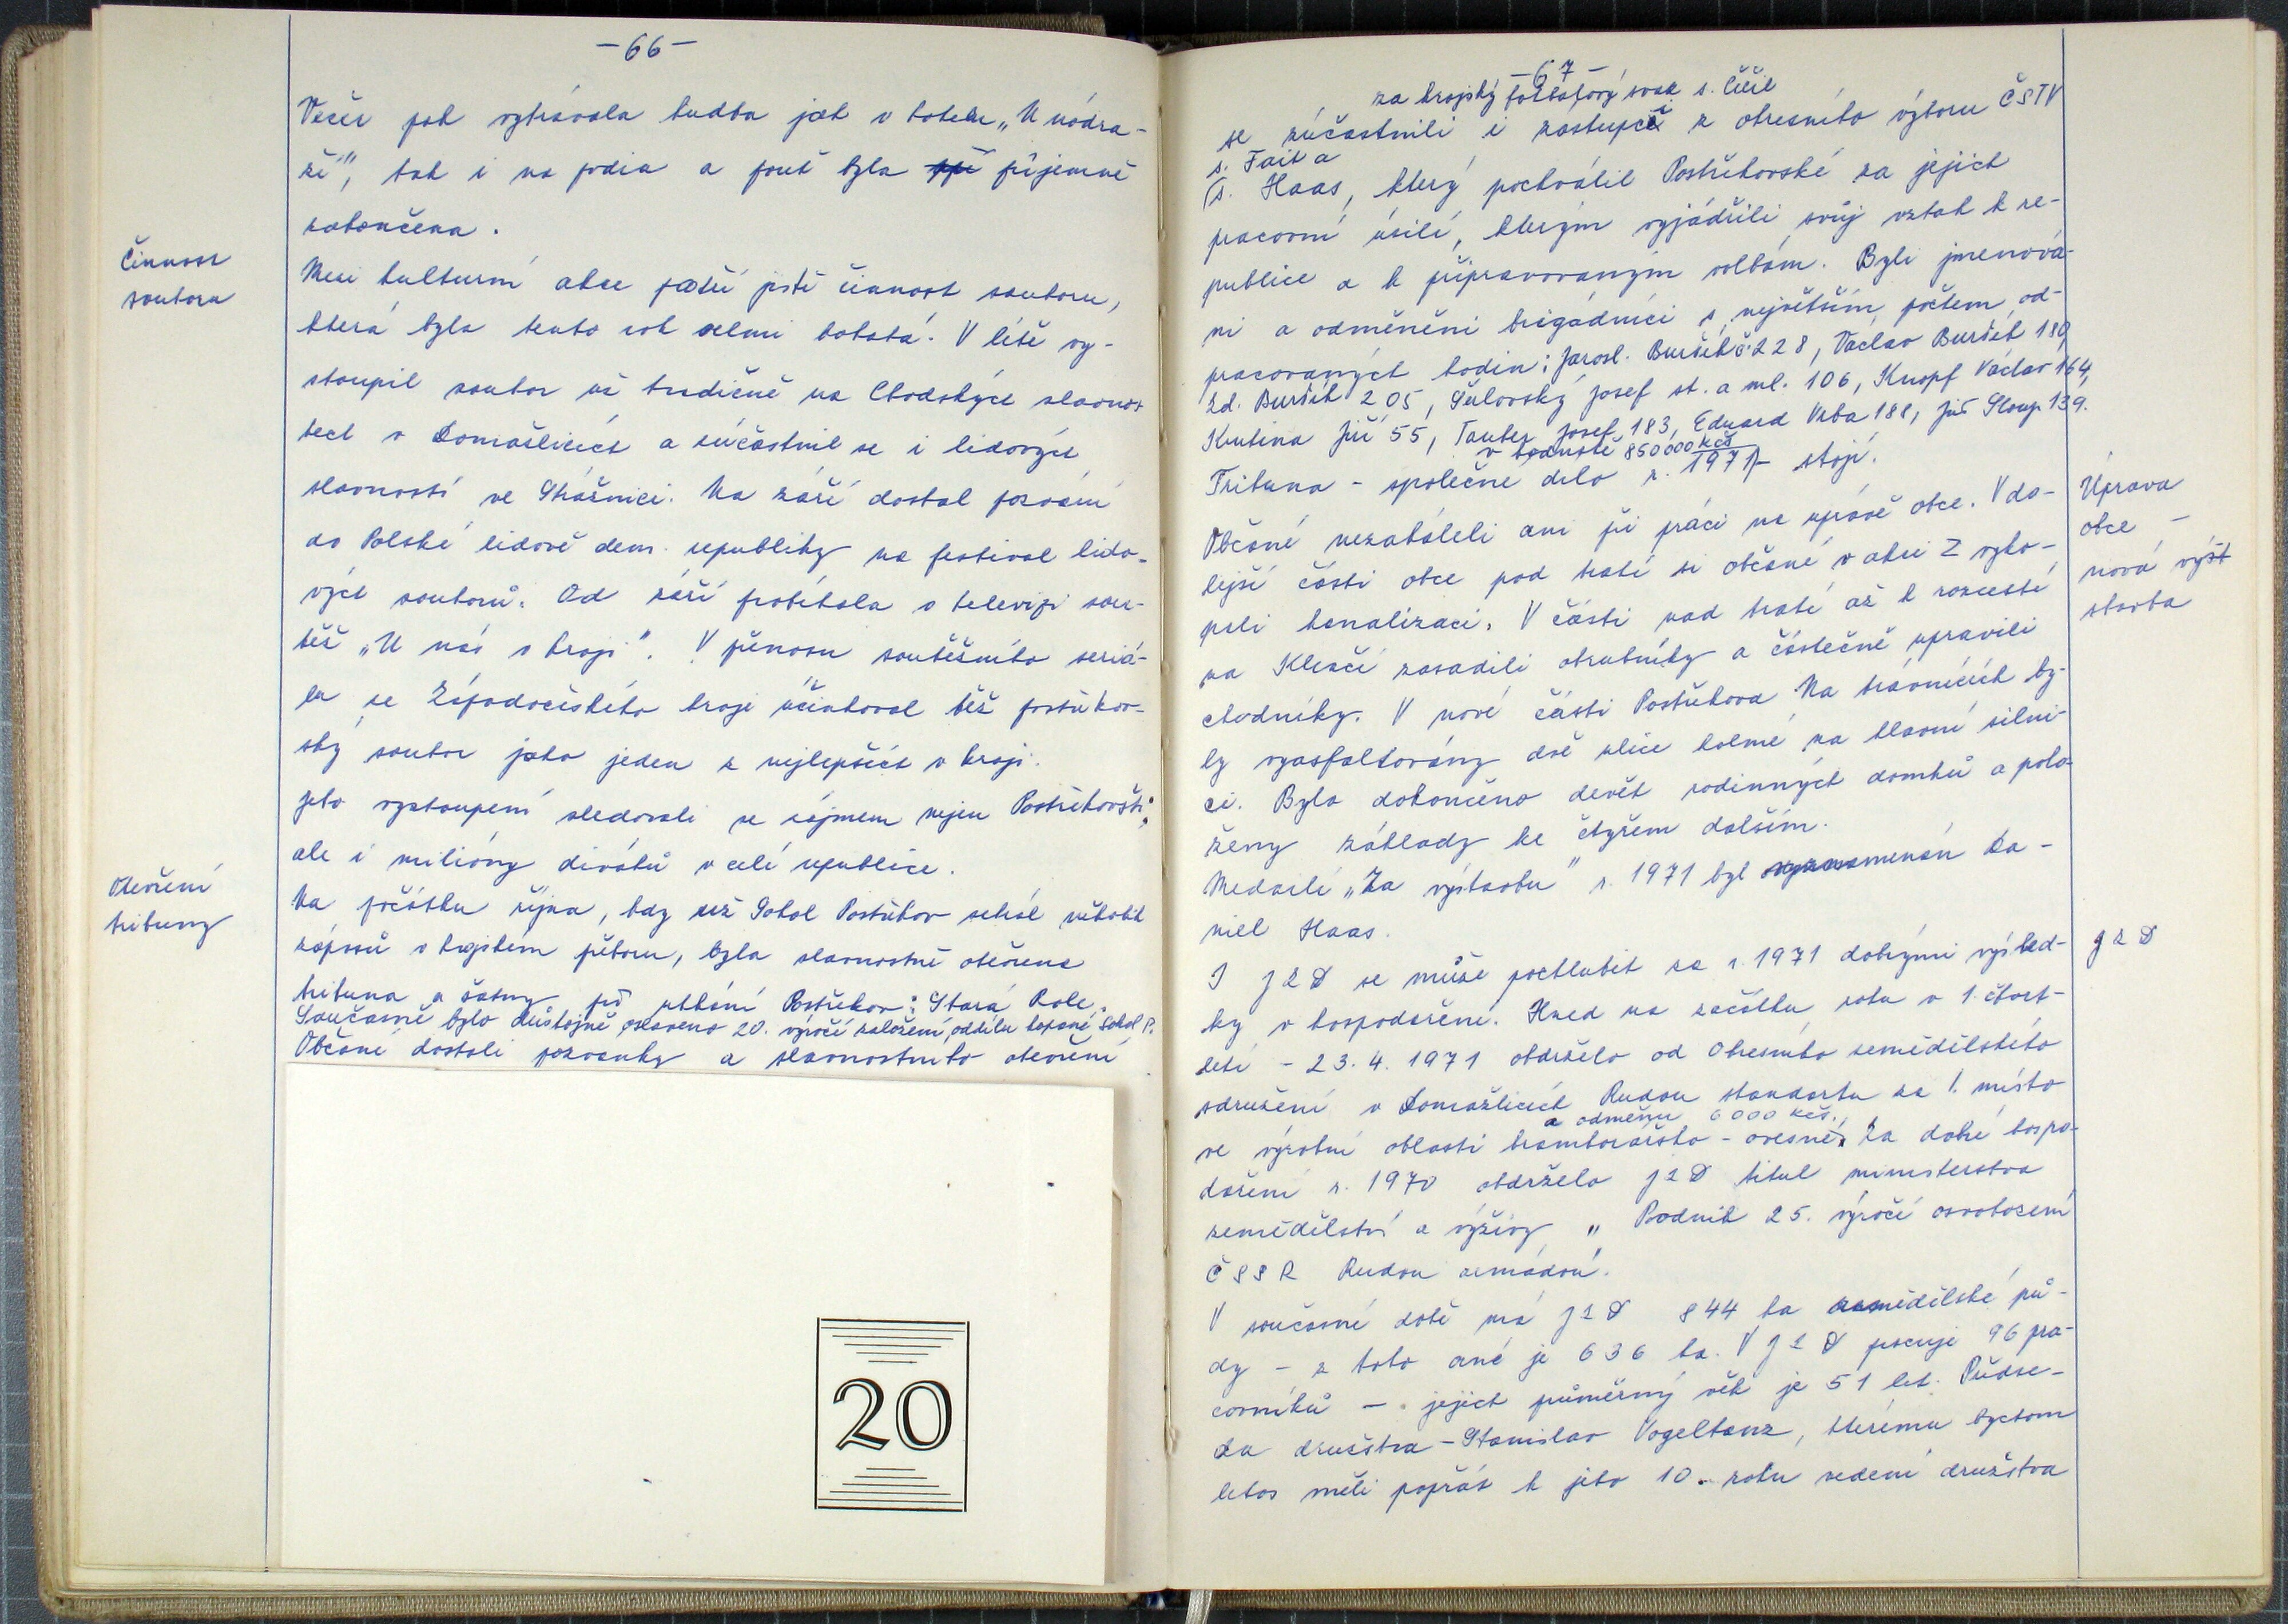 - 66 -
Večer pak vyhrávala hudba jak v hotelu „U nádra-
ží", tak i na podia a pouť byla příjemně
zakončena.
Činnost
souboru
Mezi kulturní akce patří jistě činnost souboru,
která byla tento rok velmi bohatá. V létě vy-
stoupil soubor už tradičně na Chodských slavnos
tech v Domažlicích a zúčastnil se i lidových
slavností ve Strážnici. Na září dostal pozvání
do Polské lidově dem. republiky na festival lido-
vých souborů. Od září probíhala v televizi sou-
těž „U nás v kraji". V přenosu soutěžního seriá-
lu ze Západočeského kraje účinkoval též postřekov-
ský soubor jako jeden z nejlepších v kraji.
Jeho vystoupení sledovali se zájmem nejen Postřekovští,
ale i milióny diváků v celé republice.
Otevření
tribuny
Na počátku října, kdy už Sokol Postřekov sehrál několik
zápasů v krajském přeboru, byla slavnostně otevřena
tribuna a šatny při utkání Postřekov : Stará Role.
Současně bylo důstojně oslaveno 20. výročí založení oddílu kopané Sokol P.
Občané dostali pozvánky a slavnostního otevření
20
- 67 -
za krajský fotbalový svaz s. Číčil
se zúčastnili i zástupci z okresního výboru ČSTV
s. Fait a
(s. Haas, který pochválil Postřekovské za jejich
pracovní úsilí, kterým vyjádřili svůj vztah k re-
publice a k připravovaným volbám. Byli jmenová-
ni a odměněni brigádníci s největším počtem od-
pracovaných hodin: Jarosl. Buršík č. 228, Václav Buršík 180,
Zd. Buršík 205, Šulovský Josef st. a ml. 106, Knopf Václav 164,
Kutina Jiří 55, Tauber Josef 183, Eduard Vrba 188, Jiří Sloup 139.
v hodnotě 850 000 Kčs
Tribuna - společné dílo r. 1971 - stojí.
Úprava
obce -
nová výst
stavba
Občané nezaháleli ani při práci na úpravě obce. V do-
lejší části obce pod tratí si občané v akci Z vyko-
pali kanalizaci. V části nad tratí až k rozcestí
na Klenčí zasadili obrubníky a částečně upravili
chodníky. V nové části Postřekova Na trávnících by-
ly vyasfaltovány dvě ulice kolmé na hlavní silni-
ci. Bylo dokončeno devět rodinných domků a polo-
ženy základy ke čtyřem dalším.
Medailí „Za výstavbu" r. 1971 byl vyznamenán Da-
niel Haas.
JZD
I JZD se může pochlubit za r. 1971 dobrými výsled-
ky v hospodaření. Hned na začátku roku v 1. čtvrt-
letí - 23. 4. 1971 obdrželo od Okresního zemědělského
sdružení v Domažlicích Rudou standartu za 1. místo
a odměnu 6 000 Kčs.
ve výrobní oblasti bramborářsko - ovesné. Za dobré hospo-
daření r. 1970 obdrželo JZD titul ministerstva
zemědělství a výživy „Podnik 25. výročí osvobození
ČSSR Rudou armádou".
V současné době má JZD 844 ha zemědělské pů-
dy - z toho orné je 636 ha. V JZD pracuje 96 pra-
covníků - jejich průměrný věk je 51 let. Předse-
da družstva - Stanislav Vogeltanz, kterému bychom
letos měli popřát k jeho 10. roku vedení družstva